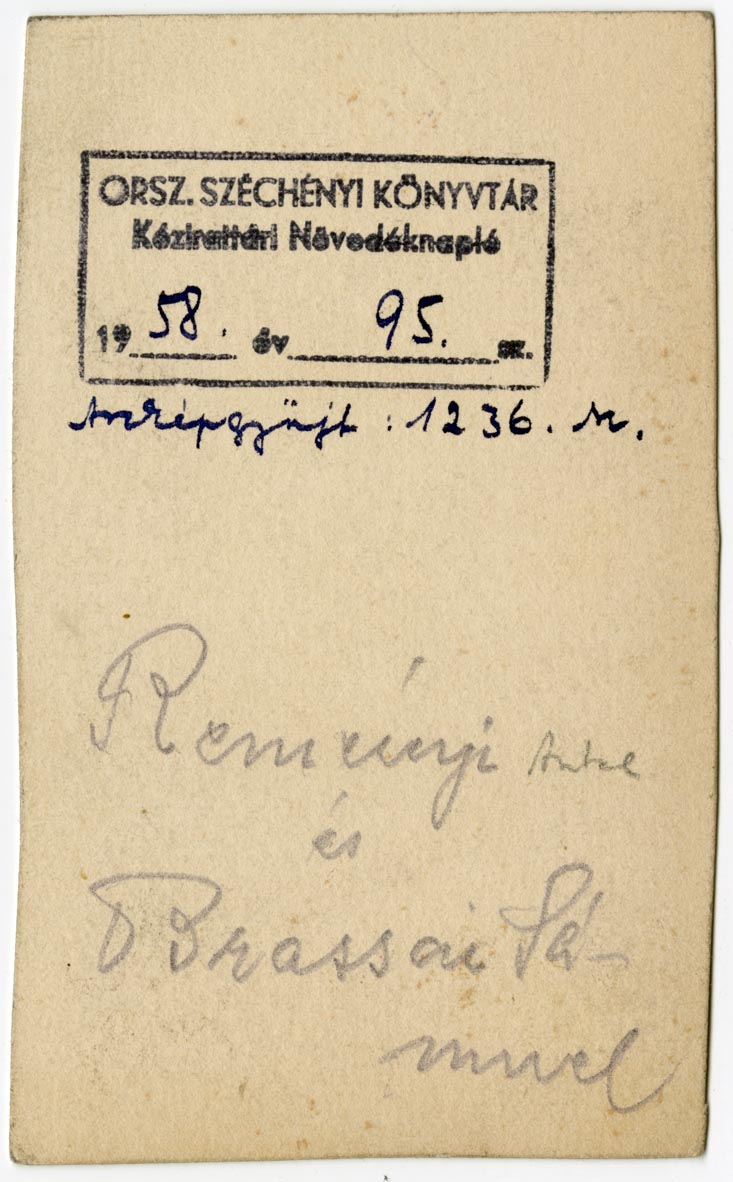 ORSZ. SZÉCHÉNYI KÖNYVTÁR
Kézirattári Növedéknapló
1958. év 95. sz.
Arcképgyűjt : 1236. sz.
Reményi Antal
és
Brassai Sá-
muel